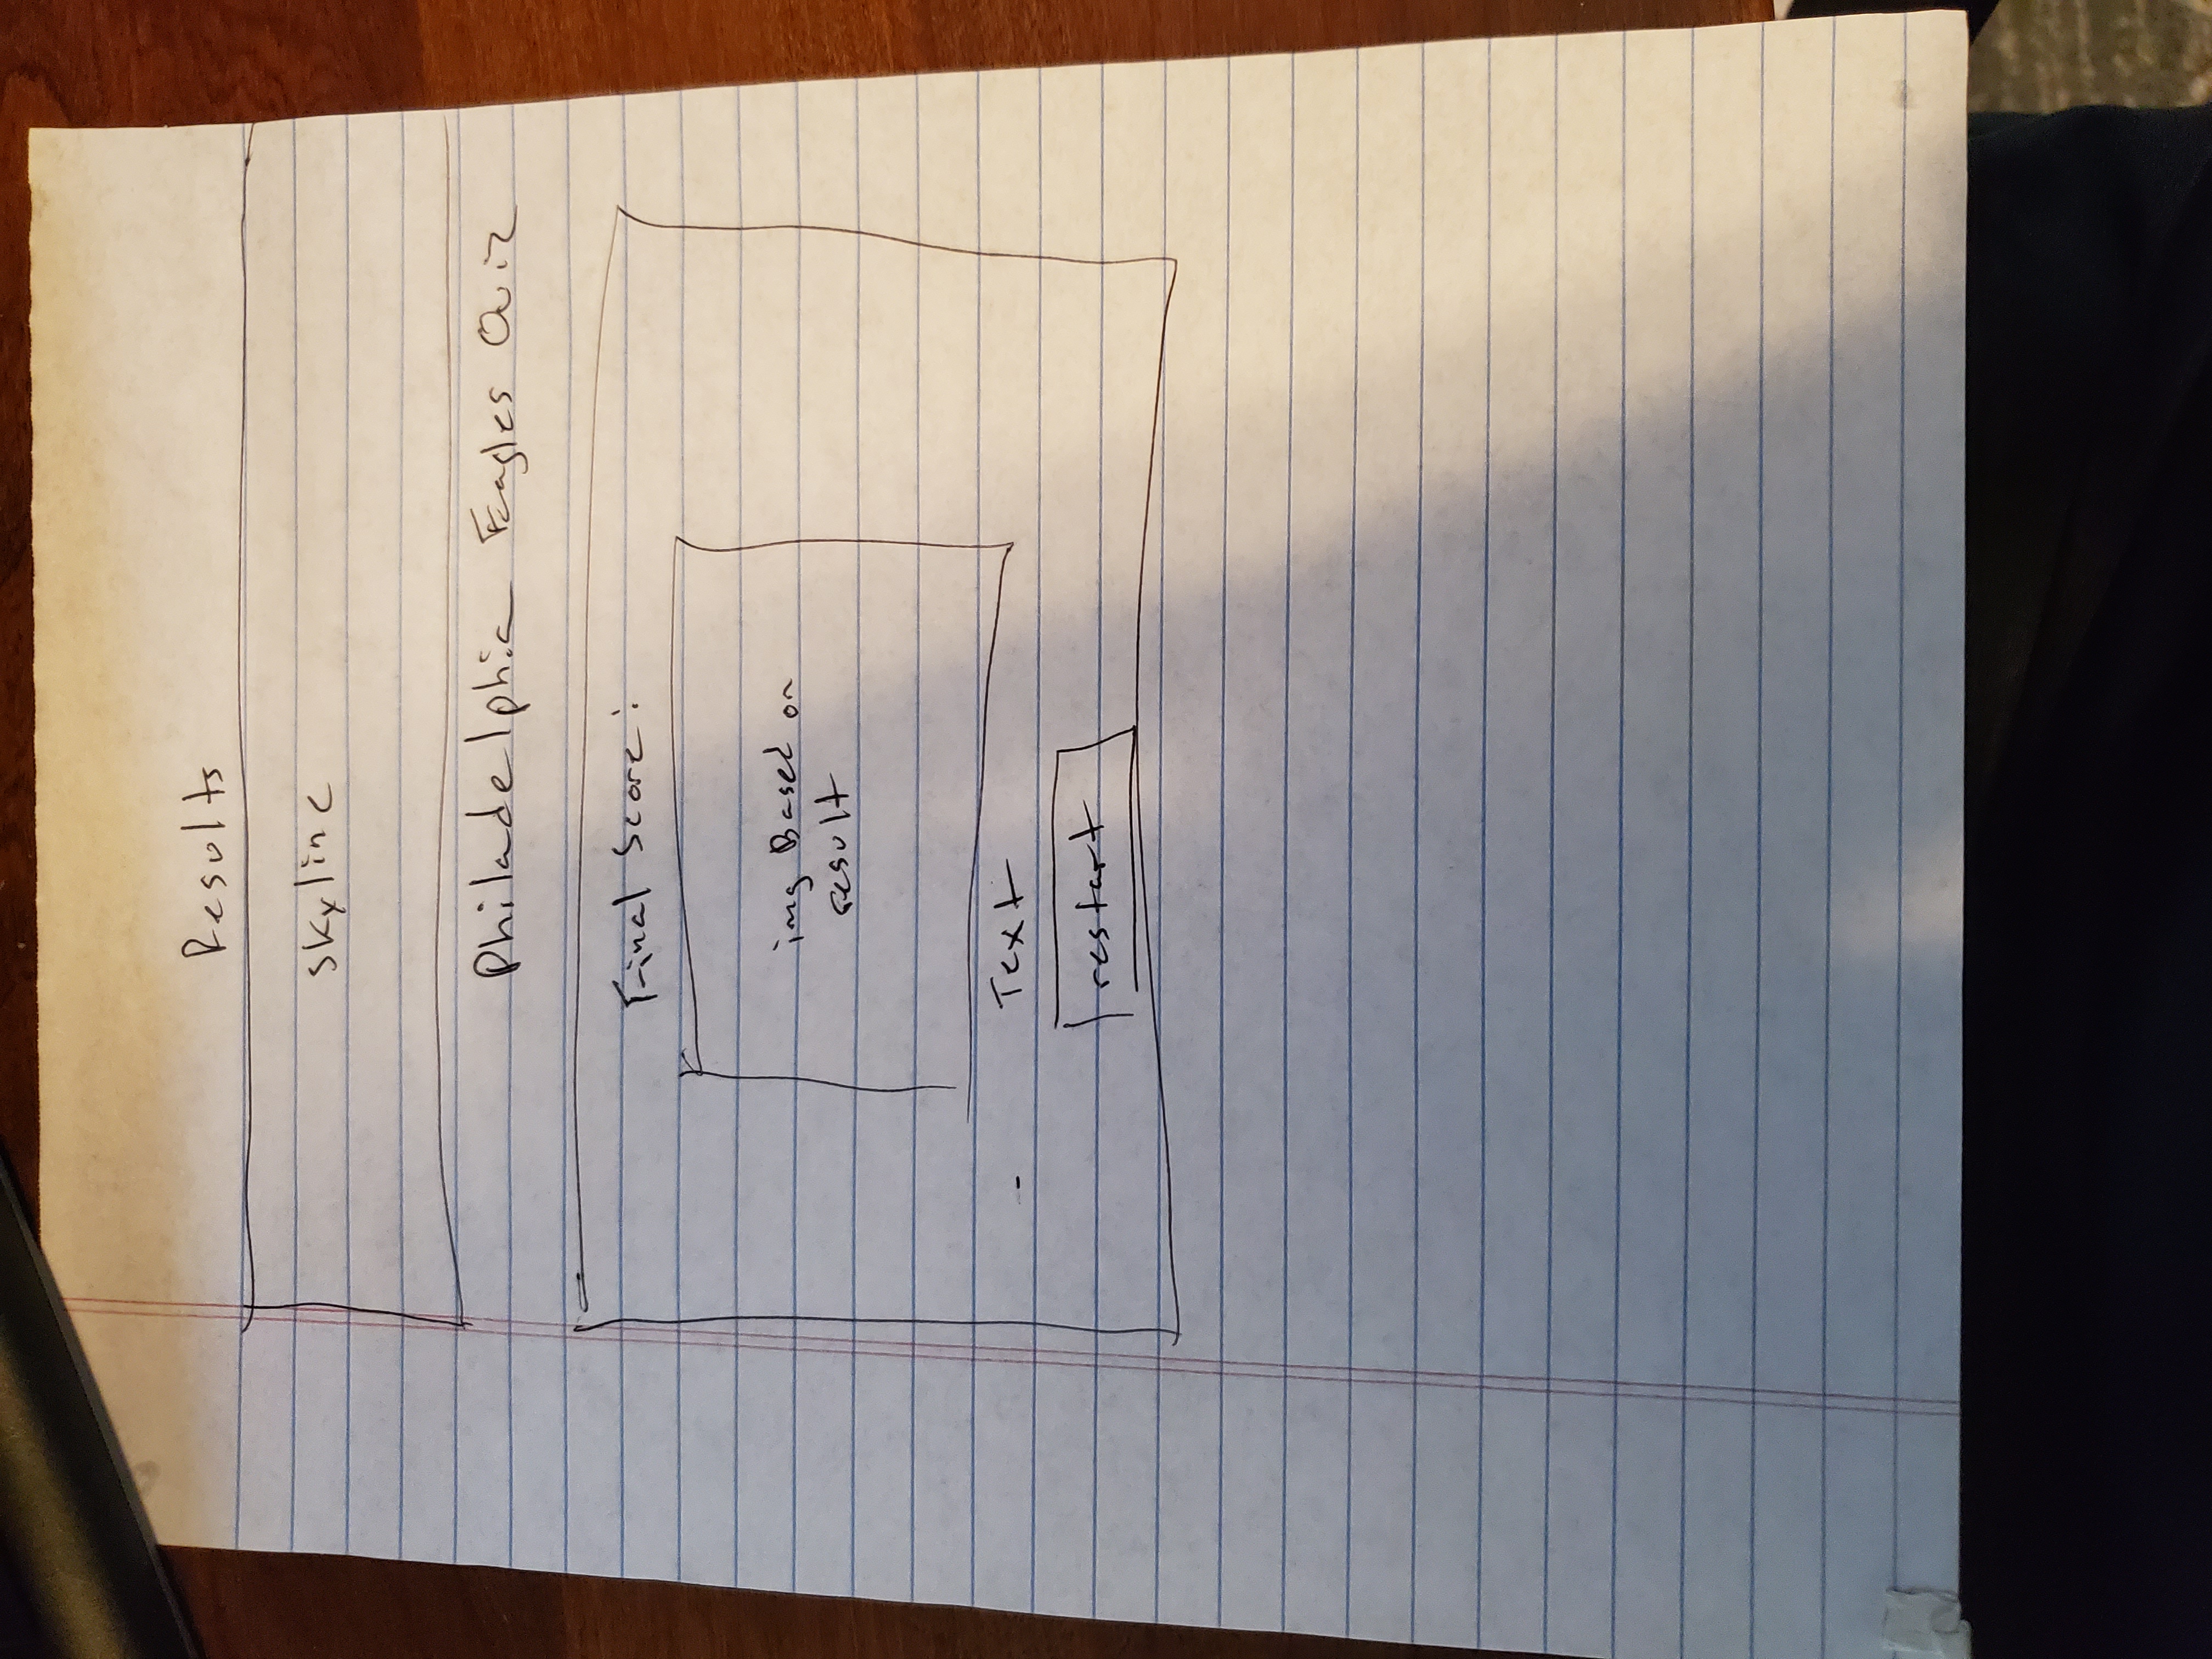 Results
skyline
Philadelphia Eagles Quiz
Final Score:
img Based on
result
Text
restart